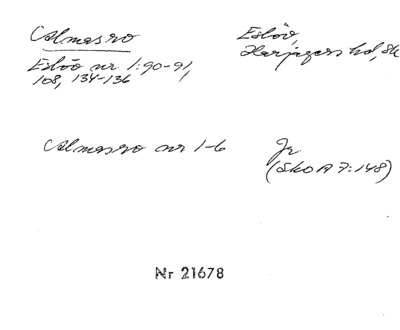 Almasro
Eslöv,
Harjagers hd, Sk
Eslöv nr 1:90-91,
108, 134-136
Almasro nr 1-6
Jr
(SkO A 7:148)
Nr 21678